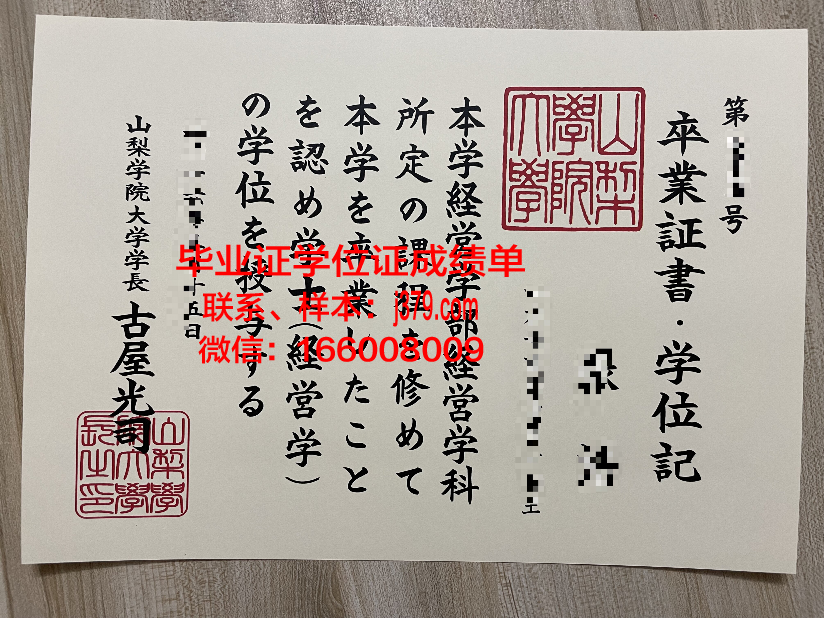 第 号
卒業証書・学位記
山梨
學院
大學
本学経営学部経営学科
所定の課程を修めて
本学を卒業したこと
を認め学士(経営学)
の学位を授与する
十五日
山梨学院大学学長 古屋光司
山梨學
院大學
長之印
毕业证学位证成绩单
联系、样本：j379.com
微信：166008009